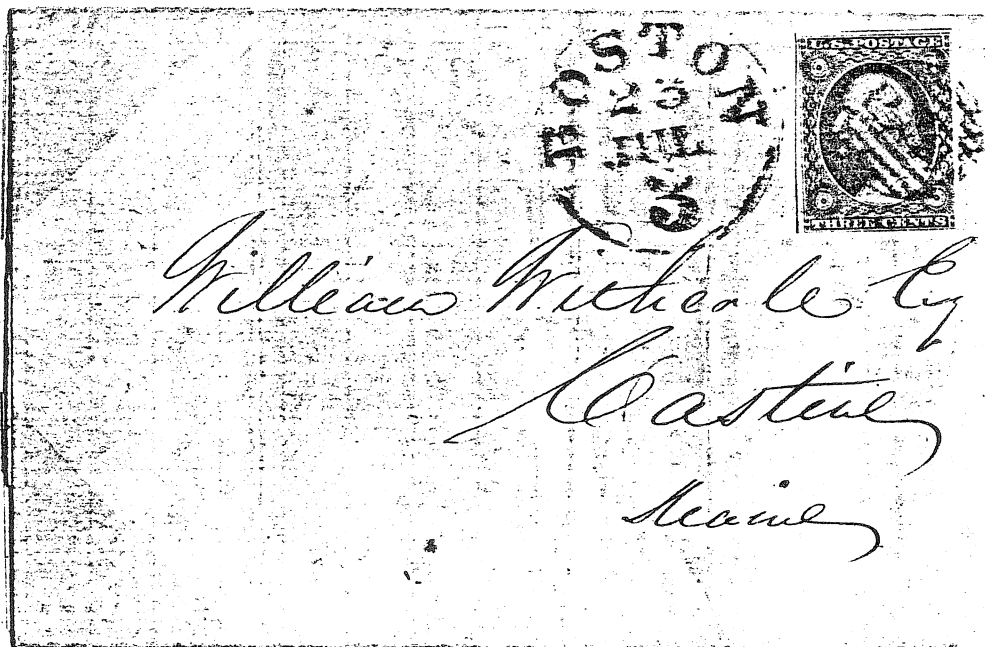 BOSTON
U.S. POSTAGE
THREE CENTS
William Witherle Esq
Castine
Maine